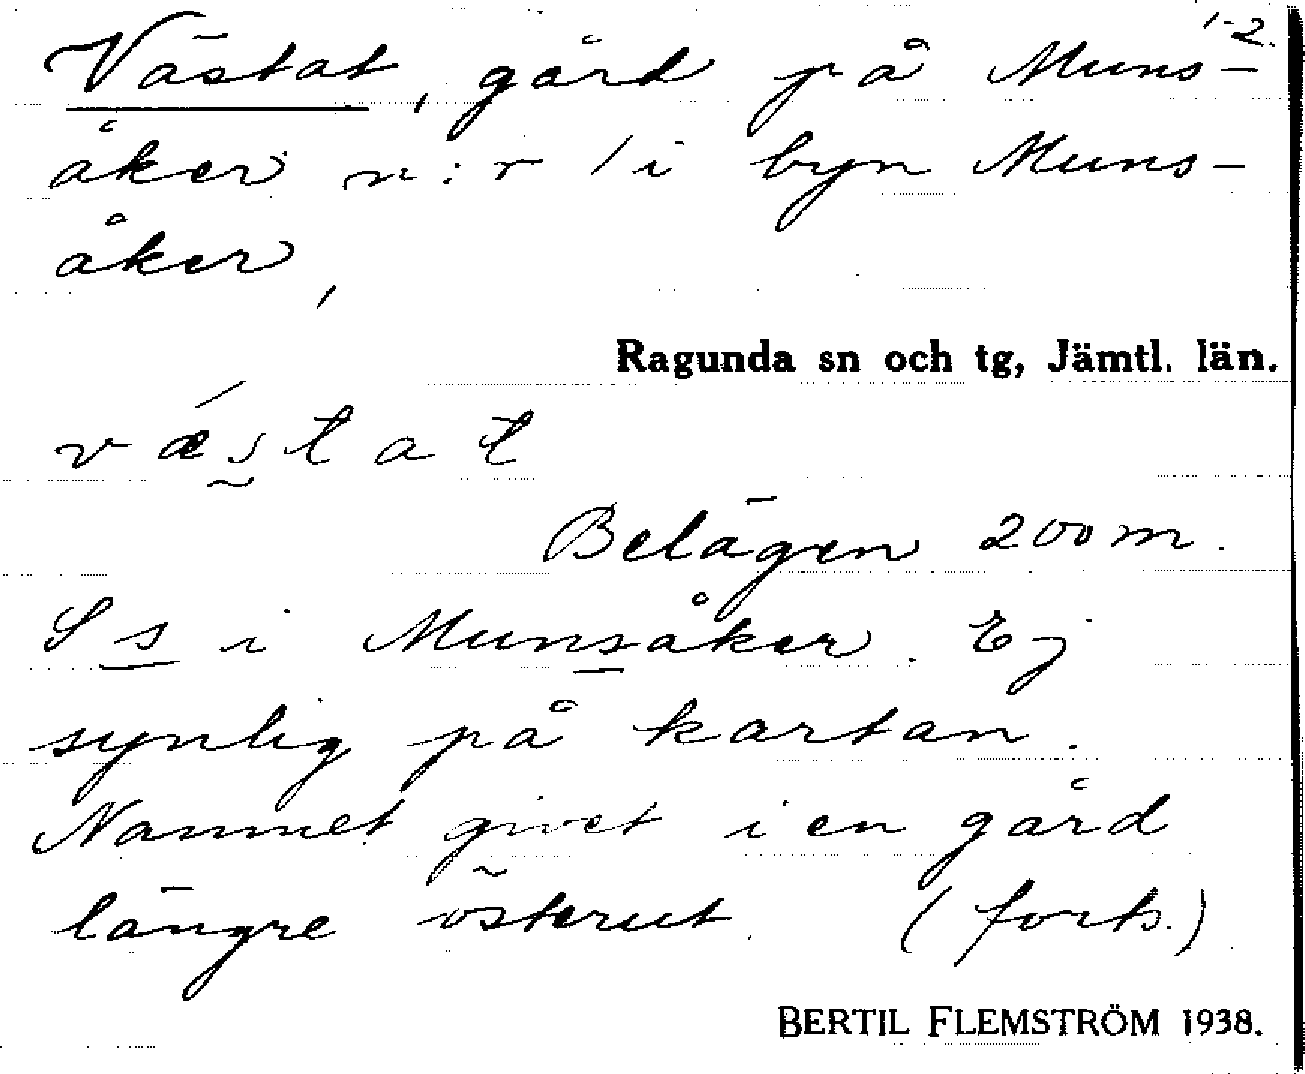 1-2.
Västat, gård på Muns-
åker n:r 1 i byn Muns-
åker,
Ragunda sn och tg, Jämtl. län.
vǽs̰tat
Belägen 200 m.
S s i Munsåker. Ej
synlig på kartan.
Namnet givet i en gård
längre österut. (forts.)
BERTIL FLEMSTRÖM 1938.